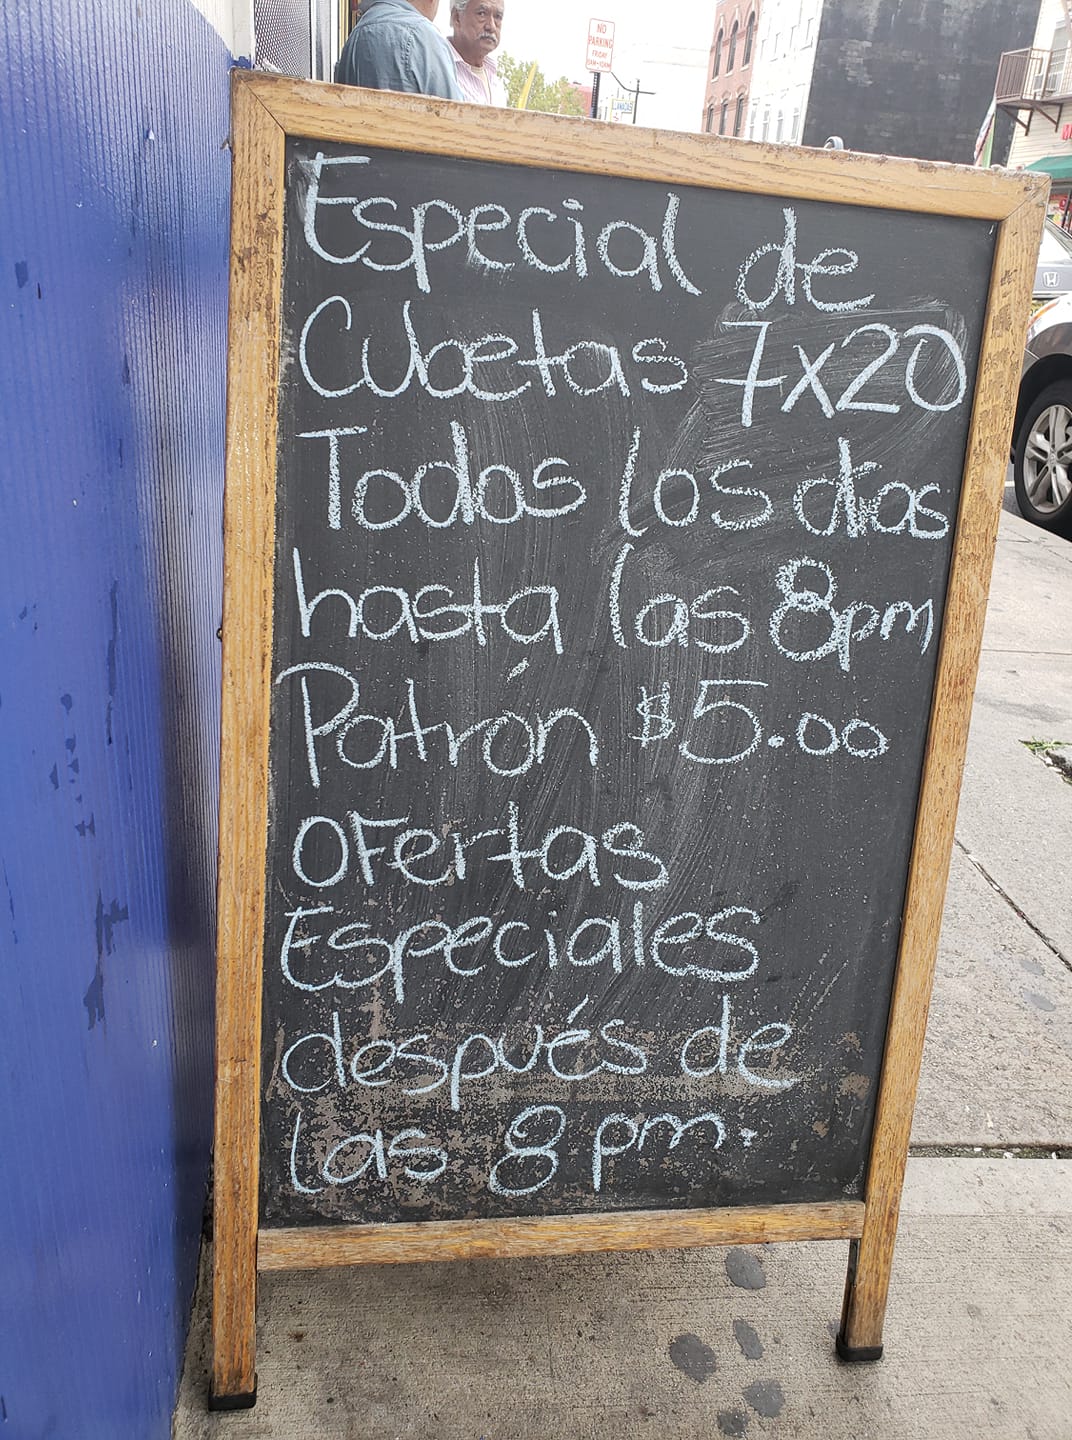 NO
PARKING
FRIDAY
Especial de
Cubetas 7x20
Todos los días
hasta las 8pm
Patrón $5.00
OFertas
Especiales
después de
las 8 pm.